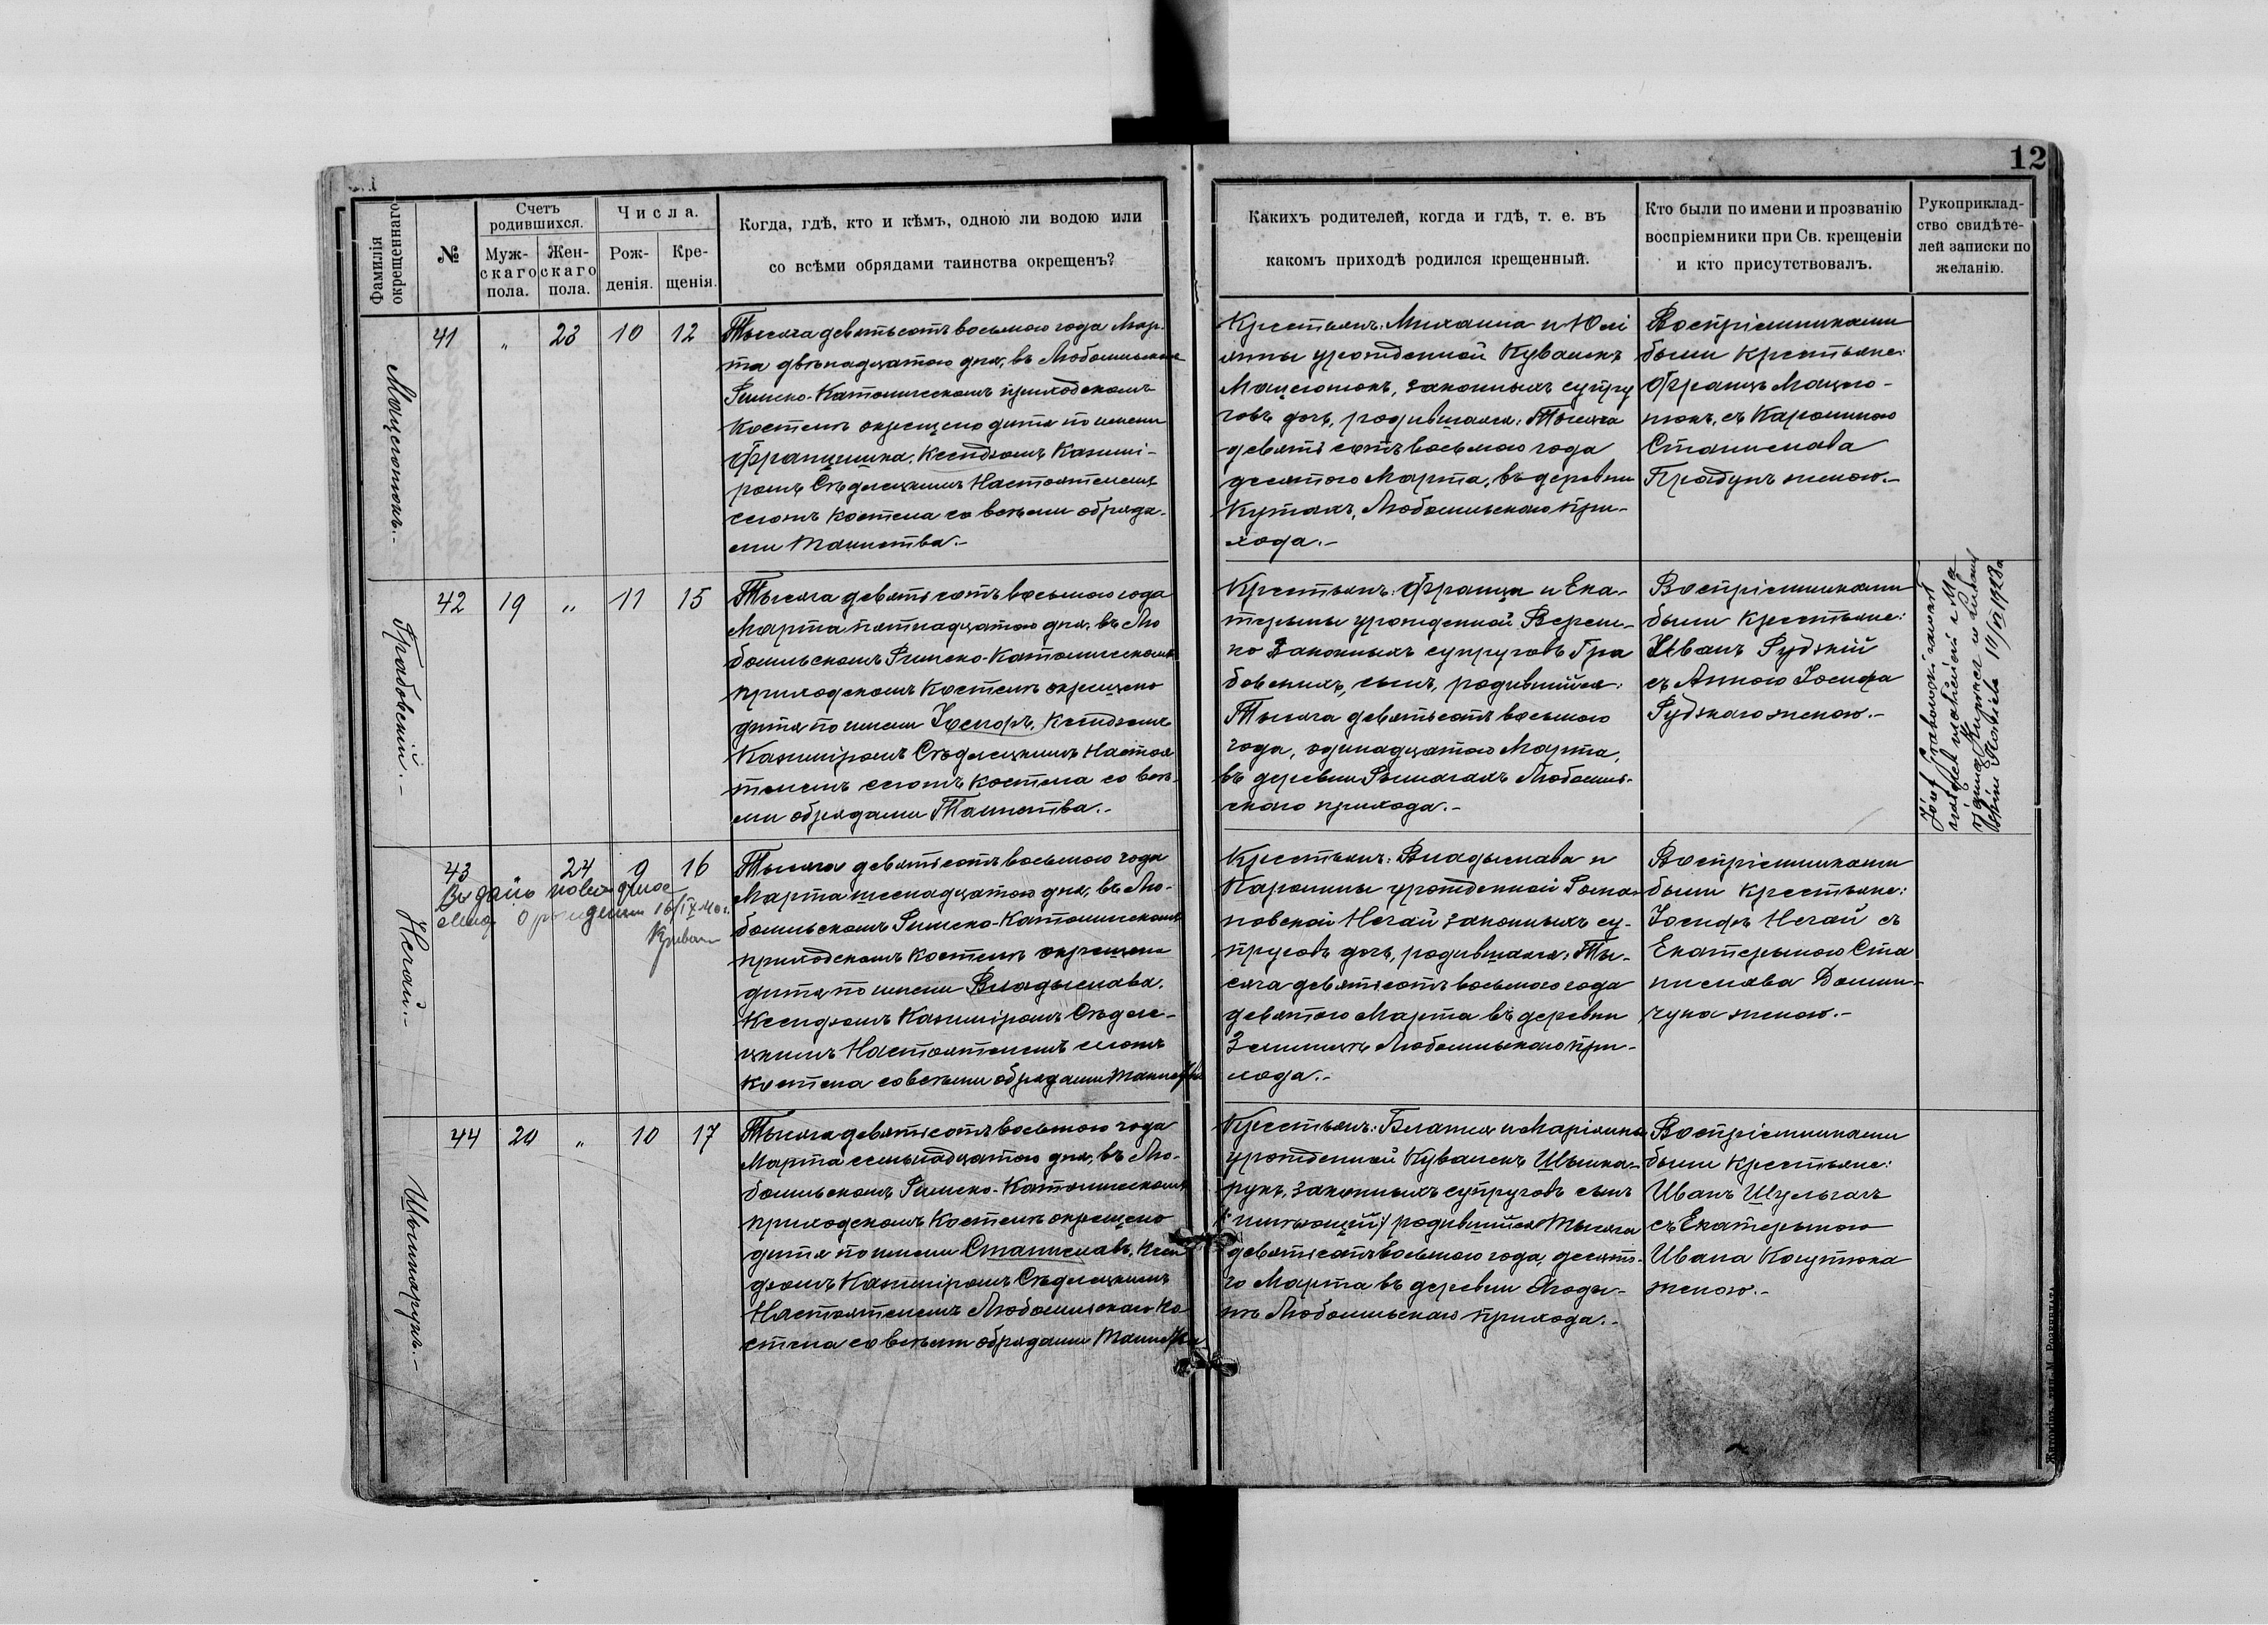 12
Фамилія окрещеннаго
№
Счетъ родившихся.
Муж-скаго пола.
Жен-скаго пола.
Числа.
Рож-денія.
Кре-щенія.
Когда, гдѣ, кто и кѣмъ, одною ли водою или
со всѣми обрядами таинства окрещенъ?
Какихъ родителей, когда и гдѣ, т. е. въ
какомъ приходѣ родился крещенный.
Кто были по имени и прозванію
воспріемники при Св. крещеніи
и кто присутствовалъ.
Рукоприклад-
ство свидѣте-
лей записки по
желанію.
41 „ 23 10 12
Тысяча девятьсотъ восьмого года Мар-
та двѣнадцатого дня, въ Любомльскомъ
Римско-Католическомъ приходскомъ
Костелѣ окрещено дитя по имени
Францишка, Ксендзомъ Казимі-
ромъ Сѣдлецкимъ Настоятелемъ
сегожъ костела со всѣми обряда-
ми Таинства.-
Крестьянъ: Михаила и Юлі
янны урожденной Ковалекъ
законныхъ супру
говъ дочь, родившаяся: Тысяча
девятьсотъ восьмого года
десятого Марта, въ деревни
Кутахъ, Любомльскаго при-
хода.-
Воспріемниками
были крестьяне:
Францъ
съ Каролиною
Станислава
женою.-
Грабовскій.-
42 19 „ 11 15
Тысяча девятьсотъ восьмого года
Марта пятнадцатого дня, въ Лю
бомльскомъ Римско-Католическомъ
приходскомъ Костелѣ окрещено
дитя по имени Іосифъ, Ксендзомъ
Казиміромъ Сѣдлецкимъ Настоя
телемъ сегожъ костела со всѣ-
ми обрядами Таинства.-
Крестьянъ: Франца и Ека-
терины урожденной
законныхъ супруговъ Гра
бовскихъ, сынъ, родившійся:
Тысяча девятьсотъ восьмого
года, одинадцатого Марта,
въ деревни Рымачахъ Любомль-
скаго прихода.-
Воспріемниками
были крестьяне:
Иванъ Рудзкій
съ Анною Іосифа
Рудзкаго женою.-
Józef Grabowski zawarł
związek małżeński z
Nechaй.-
43 24 9 16
Тысяча девятьсотъ восьмого года
Марта шеснадцатого дня, въ Лю-
бомльскомъ Римско-Католическомъ
приходскомъ Костелѣ окрещено
дитя по имени Владыслава,
Ксендзомъ Казиміромъ Сѣдле-
цкимъ Настоятелемъ сегожъ
костела со всѣми обрядами Таинства
Крестьянъ: Владыслава и
Каролины урожденной Рома-
новской Нечай законныхъ су-
пруговъ дочь, родившаяся: Ты-
сяча девятьсотъ восьмого года
девятого Марта въ деревни
Землицѣ Любомльскаго при-
хода.-
Воспріемниками
были крестьяне:
Іосифъ Нечай съ
Екатериною Ста
нислава
женою.-
44 20 „ 10 17
Тысяча девятьсотъ восьмого года
Марта семьнадцатого дня, въ Лю-
бомльскомъ Римско-Католическомъ
приходскомъ Костелѣ окрещено
дитя по имени Станиславъ, Ксен
дзомъ Казиміромъ Сѣдлецкимъ
Настоятелемъ Любомльскаго Ко-
стела со всѣми обрядами Таинства
Крестьянъ: Блажея и Маріянны
урожденной Ковалекъ
законныхъ супруговъ сынъ
родившійся Тысяча
девятьсотъ восьмого года, десято-
го Марта въ деревни
Любомльскаго прихода.-
Воспріемниками
были крестьяне:
Иванъ
съ Екатериною
Ивана
женою.-